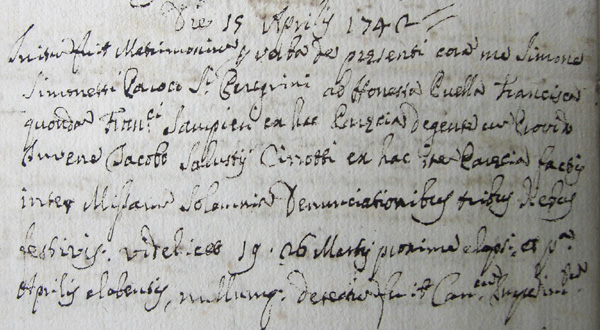 Die 15 Aprilis 1742
Initu fuit Matrimoniu p verba de presenti cora me Simone
Simonetti Paroco S. Peregrini ab Honesta Puella Francisca
quonda Fran.ci ex hac Parecia degente cu Provido
Iuvene Iacobo Salustij Cirrotti ex hac ite Parecia factis
inter Missaru Solemnia Denunciationibus tribus diebus
festivis. videlicet 19. 26 Martij proxime elapsi, et p.a
Aprilis labentis, nullumq. detectu fuit Can.cu Impedim.tu